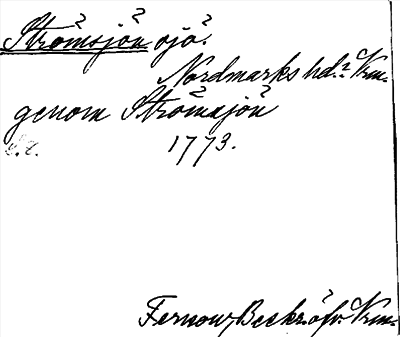 Strömsjön sjö.
Nordmarks hd. Vrm.
genom Strömsjön
1773.
Fernow, Beskr. öfv. Vrm.